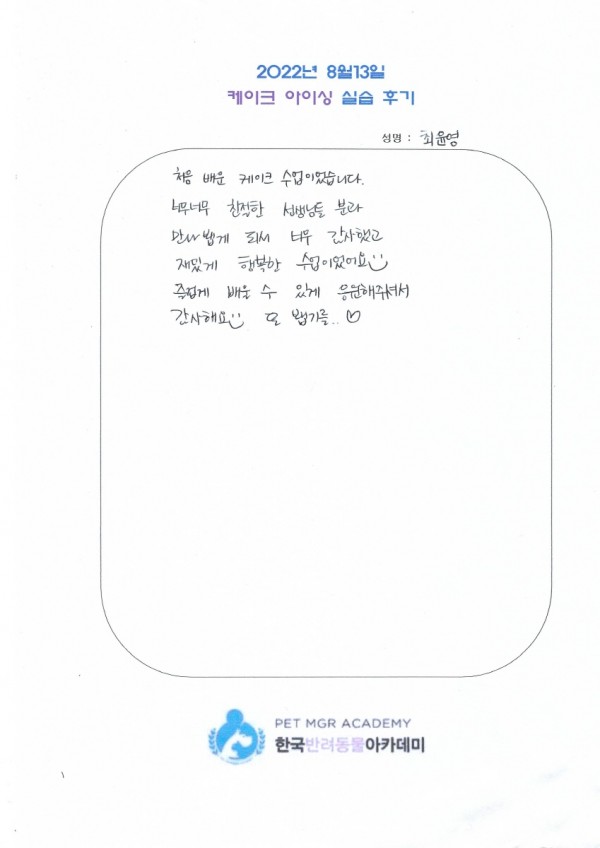 2022년 8월13일
케이크 아이싱 실습 후기
성명 : 최윤영
처음 배운 케이크 수업이었습니다.
너무너무 친절한 선생님들 분과
만나뵙게 되서 너무 감사했고
재밌게 행복한 수업이었어요
즐겁게 배울 수 있게 응원해주셔서
감사해요 또 뵙기를.. ♡
PET MGR ACADEMY
한국반려동물아카데미